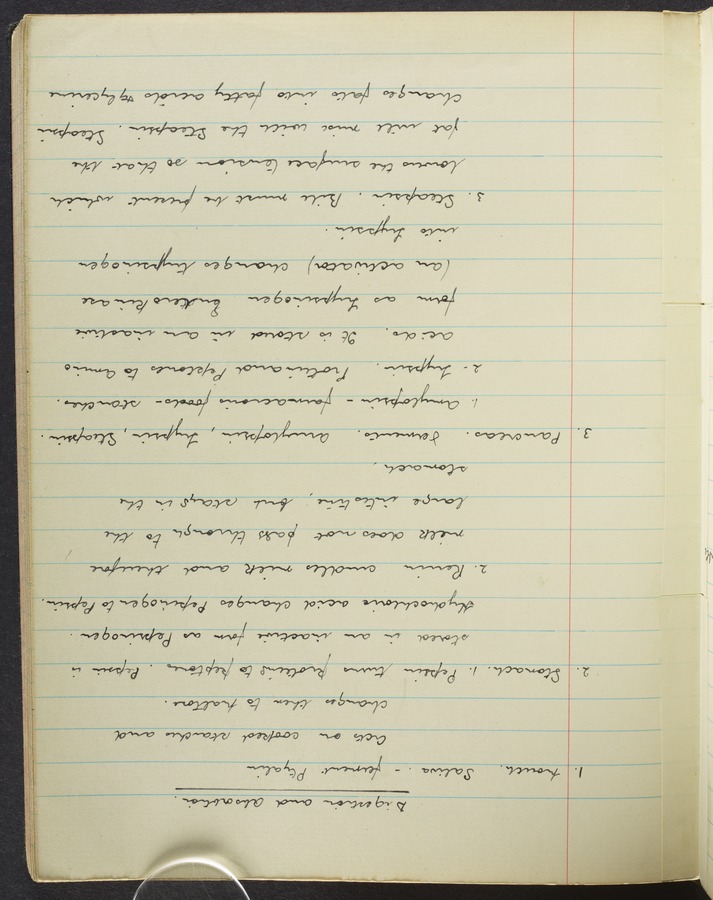 Digestion and absorption.
1. Mouth. Saliva. - ferment Ptyalin
Acts on cooked starches and
changes then to maltose.
2. Stomach. 1. Pepsin turns proteins to peptones. Pepsin is
stored in an inactive form as Pepsinogen.
Hydrochloric acid changes Pepsinogen to Pepsin.
2. Renin curdles milk and therefore
milk does not pass through to the
large intestine, but stays in the
stomach.
3. Pancreas. Ferments. Amylopsin, Trypsin, Steapsin.
1. Amylopsin - farinaceous foods - starches.
2. Trypsin. Protein and Peptones to Amino
acids. It is stored in an inactive
form as Trypsinogen Enterokinase
(an activator) changes trypsinogen
into trypsin.
3. Steapsin. Bile must be present which
lowers the surface tension so that the
fat will mix with the Steapsin. Steapsin
changes fats into fatty acids & glycerine